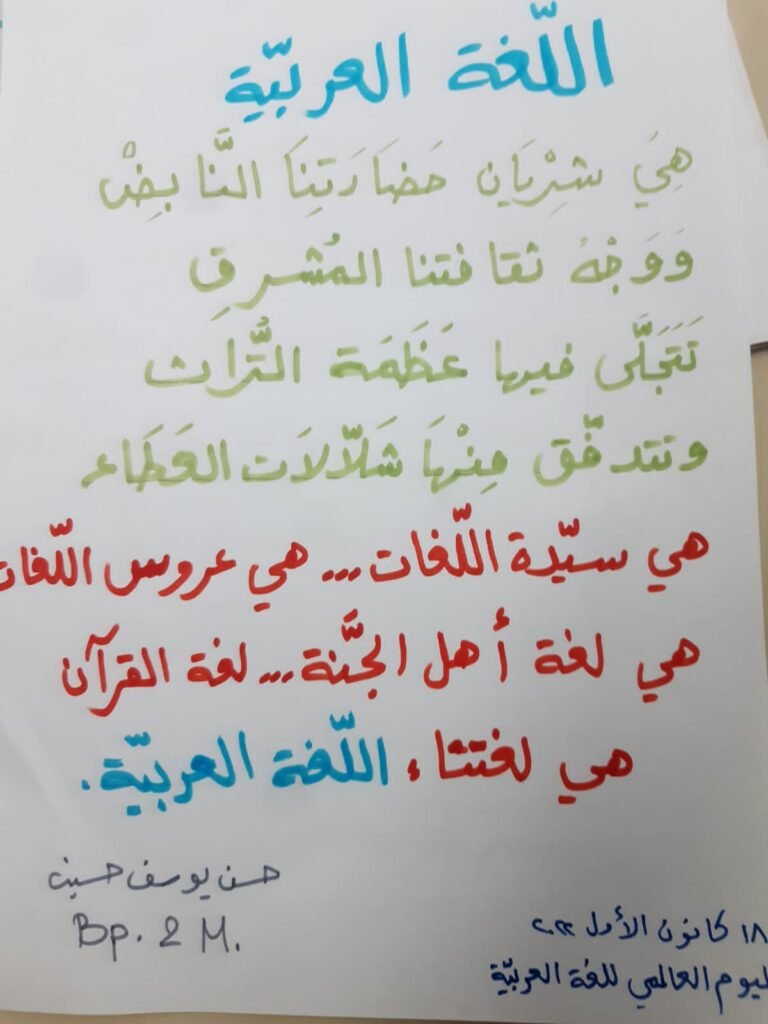 اللّغة العربيّة
هِيَ شِرْيَان حَضَارَتِنَا النَّابِضْ
وَوَجْهُ ثقافتنا المُشرقِ
تَتَجَلَّى فيها عَظَمَة التُّراث
وتتدفّق مِنْهَا شَلّالَات العَطَاء
هي سيّدة اللّغات... هي عروس اللّغات
هي لغة أهل الجنَّنة... لغة القرآن
هي لغتنا، اللّغة العربيّة.
حسن يوسف حسين
Bp. 2 M.
١٨ كانون الأول ٢٠٢٢
ليوم العالمي للغة العربيّة